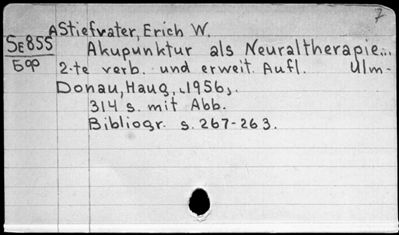 7
AStiefvater, Erich W.
SE855
Akupunktur als Neuraltherapie...
Бф
2-te verb. und erweit. Aufl. Ulm-
Donau, Haug, 1956,.
314 s. mit Abb.
Bibliogr. s. 267-263.